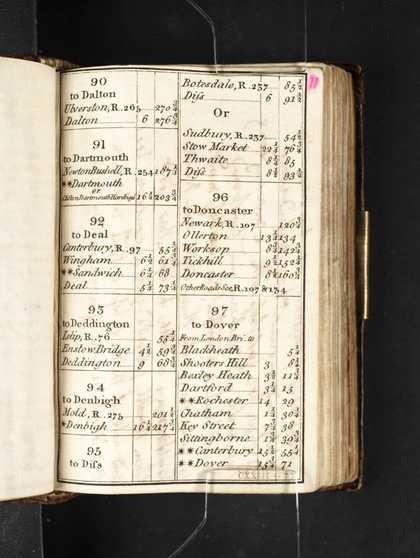 90
to Dalton
Ulverston, R. 263 270¾
Dalton 6 276¾
91
to Dartmouth
Newton Bushell, R. 254 187½
**Dartmouth
or
Clifton Dartmouth Hardness 16¼ 203¾
92
to Deal
Canterbury, R. 97 55¼
Wingham 6½ 61¾
**Sandwich 6¼ 68
Deal 5½ 73½
93
to Deddington
Islip, R. 76 55¼
Enslow Bridge 4½ 59¾
Deddington 9 68¾
94
to Denbigh
Mold, R. 275 201½
*Denbigh 16¼ 217¾
95
to Diss
Botesdale, R. 237 85½
Diss 6 91½
Or
Sudbury, R. 237 54½
Stow Market 22¼ 76¾
Thwaite 8¼ 85
Diss 8½ 93½
96
to Doncaster
Newark, R. 107 120¾
Ollerton 13¼ 134
Worksop 8¾ 142¾
Tickhill 9½ 152¼
Doncaster 8¼ 160½
Other Roads See, R. 107 & 134
97
to Dover
From London Bri. to
Blackheath 5¼
Shooters Hill 3 8¼
Bexley Heath 3¼ 11½
Dartford 3½ 15
**Rochester 14 29
Chatham 1½ 30½
Key Street 7½ 38
Sittingborne 1¾ 39¾
**Canterbury 15½ 55¼
**Dover 15¾ 71